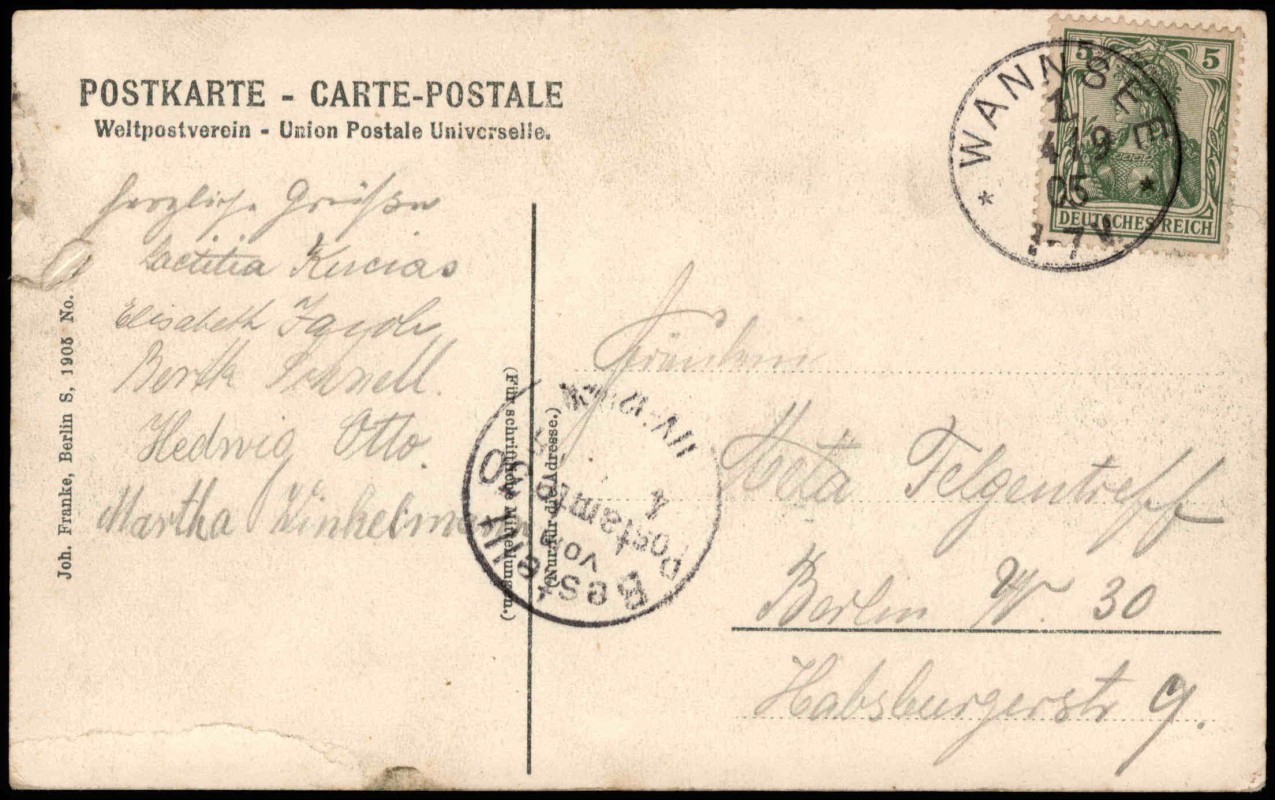 POSTKARTE - CARTE-POSTALE
Weltpostverein - Union Postale Universelle.
5 5
DEUTSCHES REICH
* WANNSEE *
1
4 9
05
-7 V.
Herzliche Grüße
Laetitia
Elisabeth
Berta Schnell.
Hedwig Otto.
Martha Winkelmann
Joh. Franke, Berlin S, 1905 No.
(Für schriftliche Mitteilungen.)
(Nur für die Adresse.)
Bestellt
vom
Postamte 30
4
Fräulein
Meta Felgentreff
Berlin W. 30
Habsburgerstr 9.